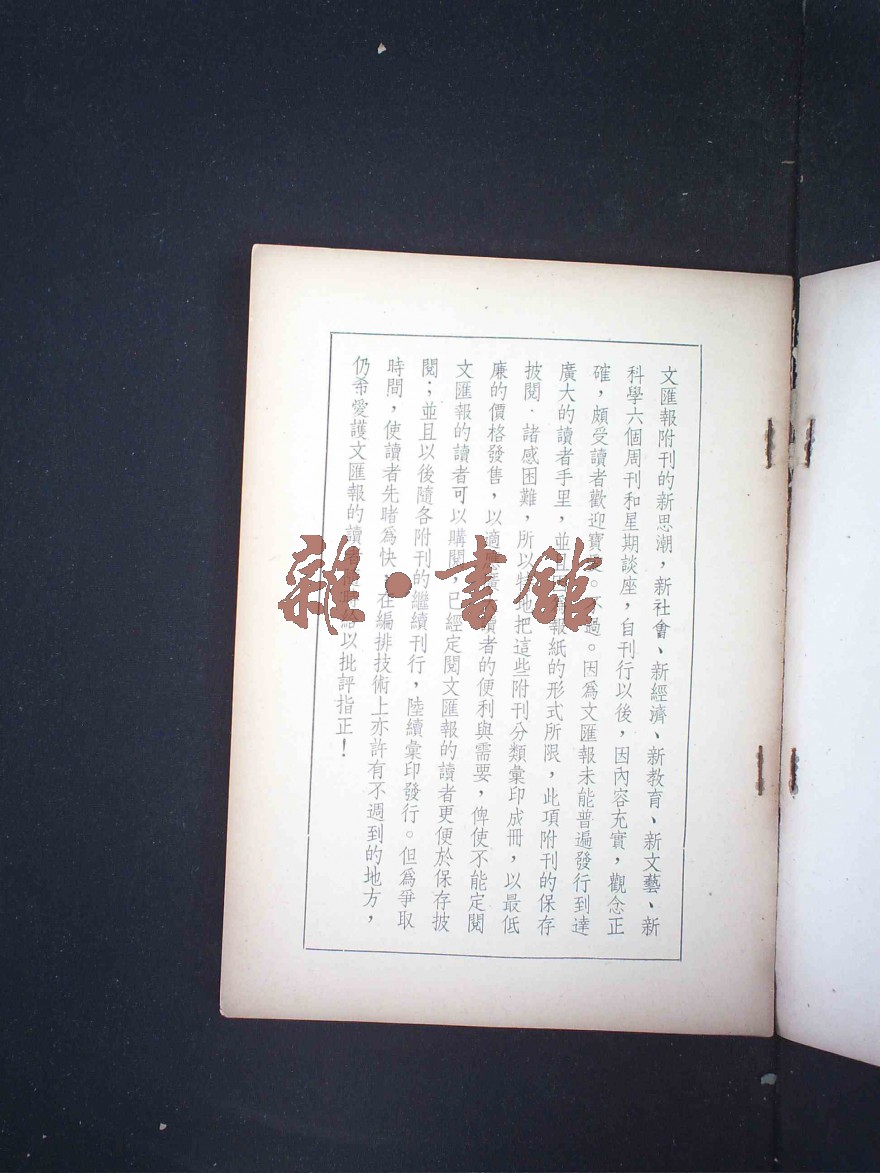 文匯報附刊的新思潮，新社會、新經濟、新教育、新文藝、新
科學六個周刊和星期談座，自刊行以後，因內容充實，觀念正
確，頗受讀者歡迎寶。不過。因爲文匯報未能普遍發行到達
廣大的讀者手里，並且報紙的形式所限，此項附刊的保存
披閱．諸感困難，所以特地把這些附刊分類彙印成冊，以最低
廉的價格發售，以適應讀者的便利與需要，俾使不能定閱
文匯報的讀者可以購閱，已經定閱文匯報的讀者更便於保存披
閱；並且以後隨各附刊的繼續刊行，陸續彙印發行。但爲爭取
時間，使讀者先睹爲快，在編排技術上亦許有不週到的地方，
仍希愛護文匯報的讀者以批評指正！
雜·書館